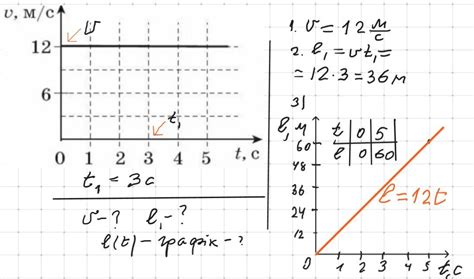 v, м/с
v
12
6
t₁
0 1 2 3 4 5 t, с
t₁ = 3с
v - ? l₁ - ?
l(t) - графік - ?
1. v = 12 м/с
2. l₁ = vt₁ =
= 12 · 3 = 36 м
3)
l, м
t 0 5
l 0 60
60
48
36
24
12
l = 12t
0 1 2 3 4 5 t, с